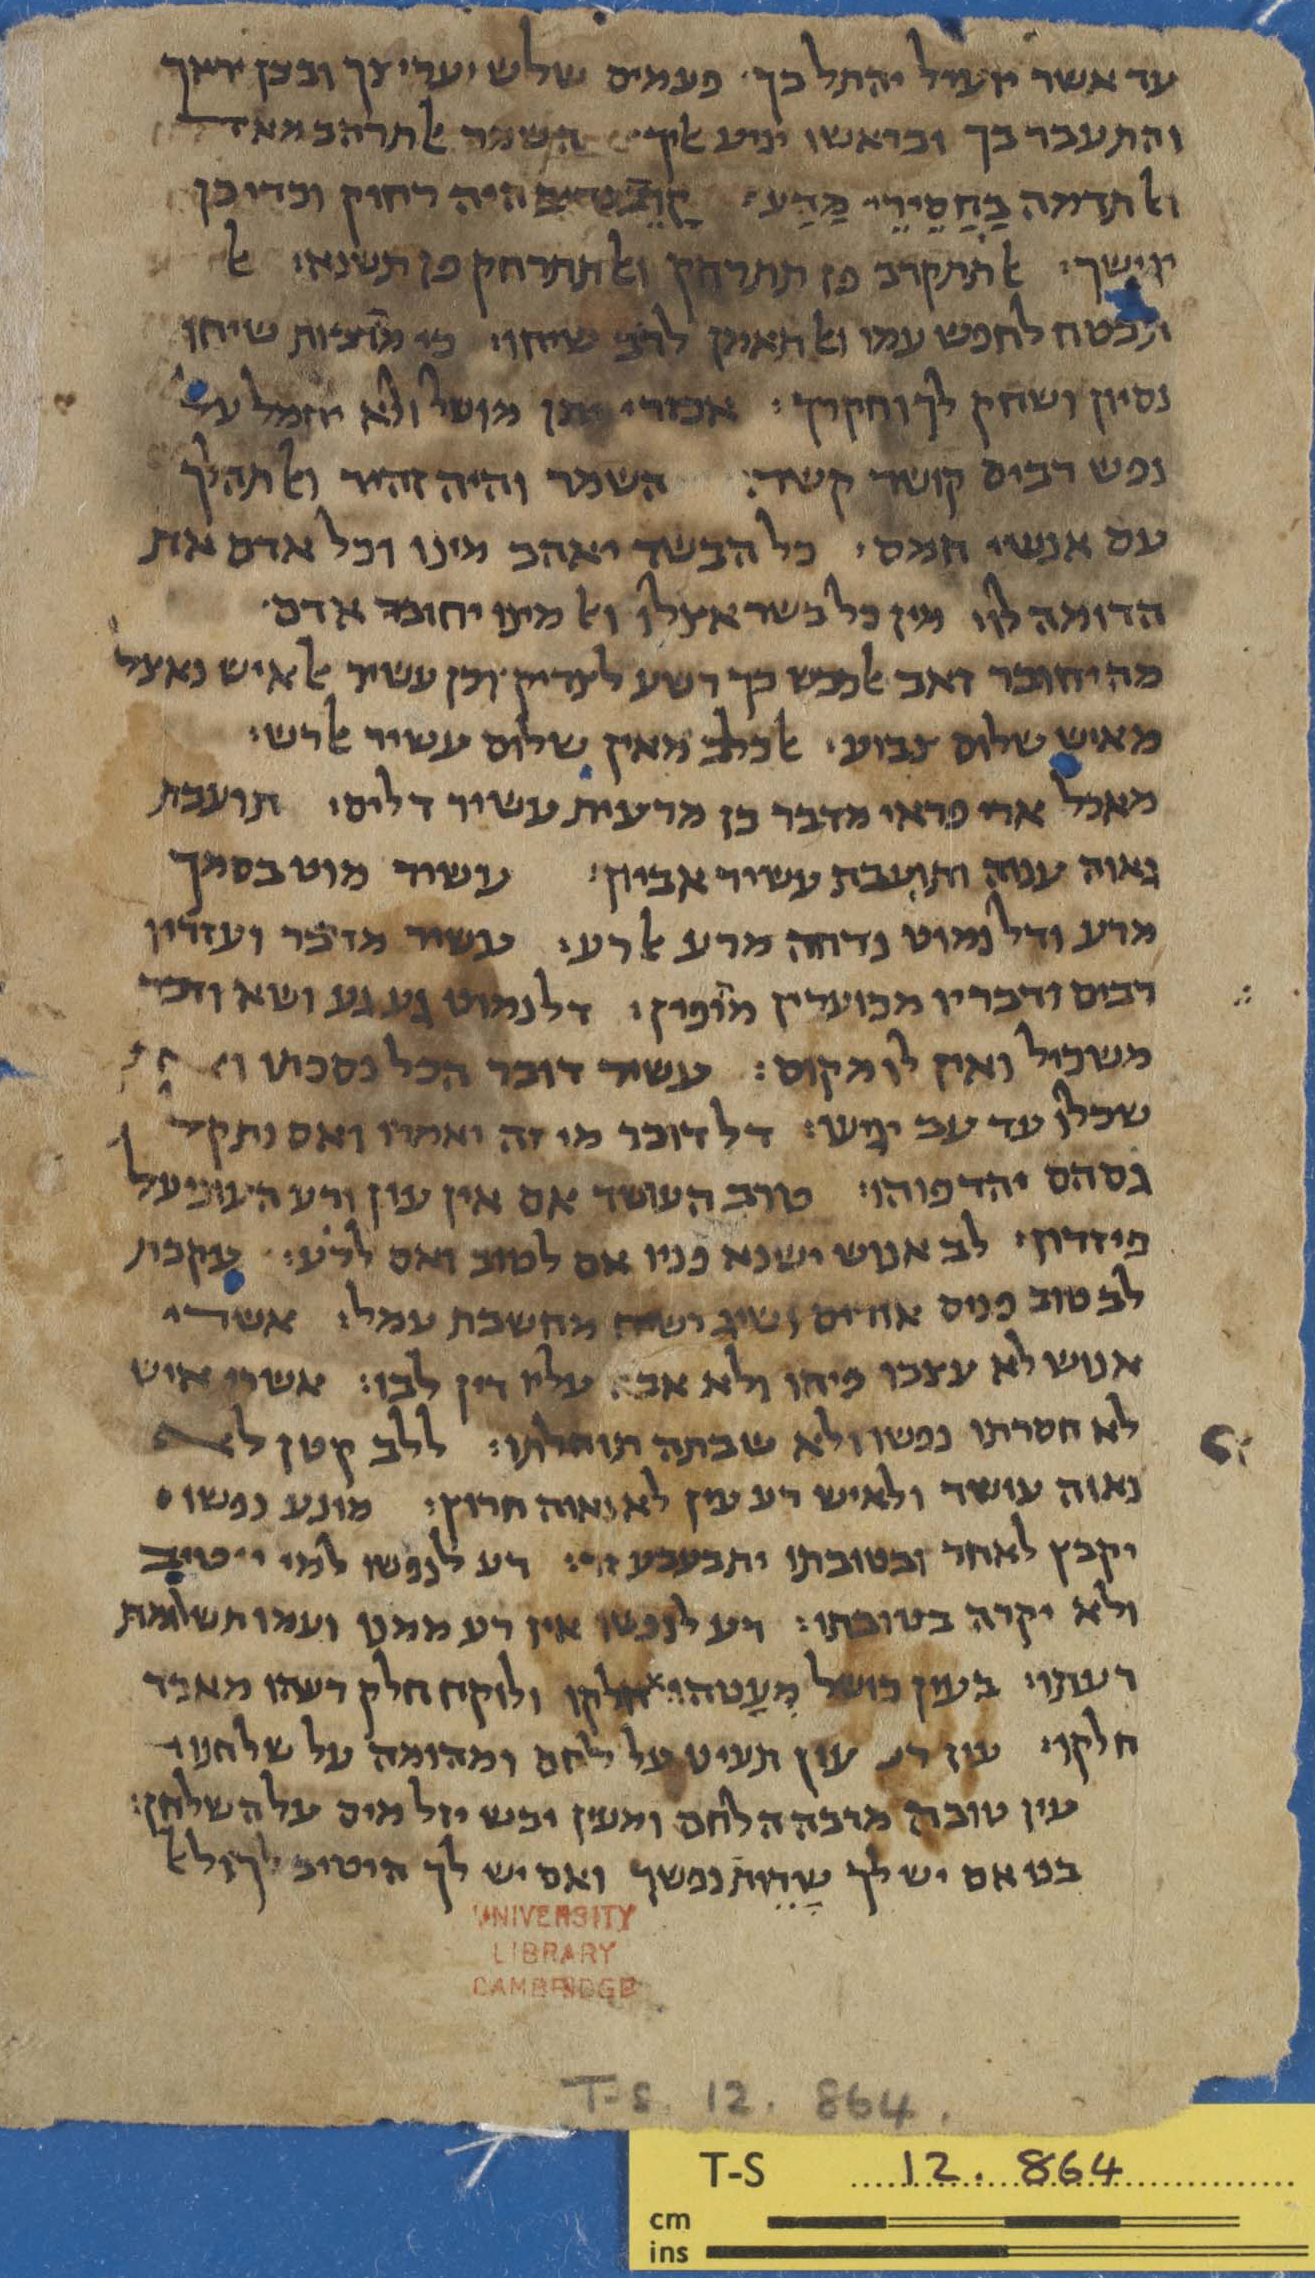 עד אשר יועיל יהתל בך פעמים שלש יעריצך ובכן יראך
והתעבר בך ובראשו יניע אליך השמר אל תרהב מאד
ואל תדמה בחסירי מדע היה רחוק וכדי כן
יגישך אל תתקרב פן תתרחק ואל תתרחק פן תשנא אל
תבטח לחפש עמו ואל תאמן לרב שיחו כי מרבות שיחו
נסיון ושחק לך וחקרך אכזרי יתן מושל ולא יחמל על
נפש רבים קושר קשר השמר והיה זהיר ואל תהלך
עם אנשי חמס כל הבשר יאהב מינו וכל אדם את
הדומה לו מין כל בשר אצלו ואל מינו יחובר אדם
מה יחובר זאב אל כבש כך רשע לצדיק וכן עשיר אל איש נאצל
מאיש שלום צבוע אל כלב מאין שלום עשיר אל רש
מאכל ארי פראי מדבר כן מרעית עשיר דלים תועבת
גאוה ענוה ותועבת עשיר אביון עשיר מוט בסמך
מרע ודל נמוט נדחה מרע אל רע עשיר מדבר ועזריו
רבים ודבריו מכוערין מופין דל נמוט גע גע ושא ודבר
משכיל ואין לו מקום עשיר דובר הכל נסכתו
שכלו עד עב יגיעו דל דובר מי זה יאמרו ואם נתקל
גם הם יהדפוהו טוב העושר אם אין עון ורע העוני על
פי זדון לב אנוש ישנא פניו אם לטוב ואם לרע עקבת
לב טוב פנים אורים ושיג ושיח מחשבת עמל אשרי
אנוש לא עצבו פיהו ולא אבה עליו דין לבו אשרי איש
לא חסרתו נפשו ולא שבתה תוחלתו ללב קטן לא
נאוה עושר ולאיש רע עין לא נאוה חרוץ מונע נפשו
יקבץ לאחר ובטובתו יתבעבע זר רע לנפשו למי ייטיב
ולא יקרה בטובתו רע לנפשו אין רע ממנו ועמו תשלומת
רעתו בעין כושל מעט הוא חלקו ולוקח חלק רעהו מאבד
חלקו עין רע עין תעיט על לחם ומהומה על שלחנו
עין טובה מרבה הלחם ומעין יבש יזל מים על השלחן
בני אם יש לך שרות נפשך ואם יש לך היטיב לך ולאל
UNIVERSITY
LIBRARY
CAMBRIDGE
T-S. 12. 864.
T-S 12. 864
cm
ins